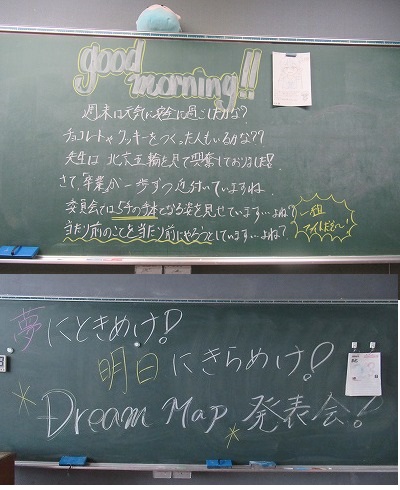 good
morning!!
週末は元気に安全に過ごしたかな?
チョコレートやクッキーをつくった人もいるかな??
先生は北京五輪を見て興奮しておりました!
さて、「卒業」が一歩ずつ近付いていますね
委員会では5年の手本となる姿を見せています…よね?
当たり前のことを当たり前にやろうとしています…よね?
夢にときめけ!
明日にきらめけ!
Dream Map 発表会!